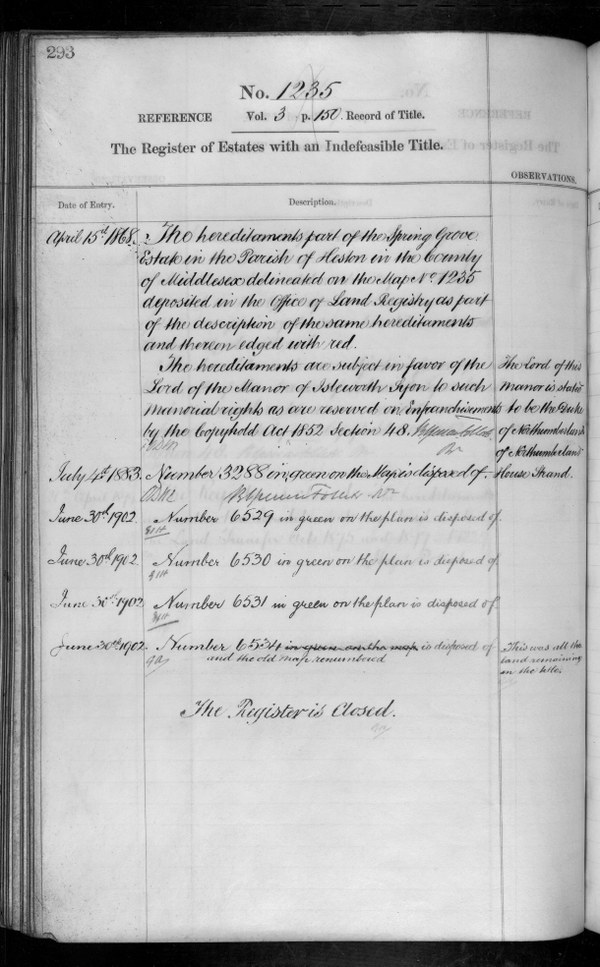 293
No. 1235
REFERENCE Vol. 3 p. 150 Record of Title.
The Register of Estates with an Indefeasible Title.
OBSERVATIONS.
Date of Entry.
Description.
April 15th 1868. The hereditaments part of the Spring Grove
Estate in the Parish of Heston in the County
of Middlesex delineated on the Map No. 1235
deposited in the Office of Land Registry as part
of the description of the same hereditaments
and thereon edged with red.
The hereditaments are subject in favor of the
Lord of the Manor of Isleworth Syon to such
manorial rights as are reserved on Enfranchisements
by the Copyhold Act 1852 Section 48.
The Lord of this
manor is stated
to be the Duke
of Northumberland
of Northumberland
House Strand.
July 4th 1883. Number 3288 in green on the Map is disposed of.
June 30th 1902. Number 6529 in green on the plan is disposed of.
June 30th 1902 Number 6530 in green on the plan is disposed of
June 30th 1902 Number 6531 in green on the plan is disposed of.
June 30th 1902. Number 6534 in green on the map is disposed of
and the old map renumbered
This was all the
land remaining
in the title.
The Register is Closed.